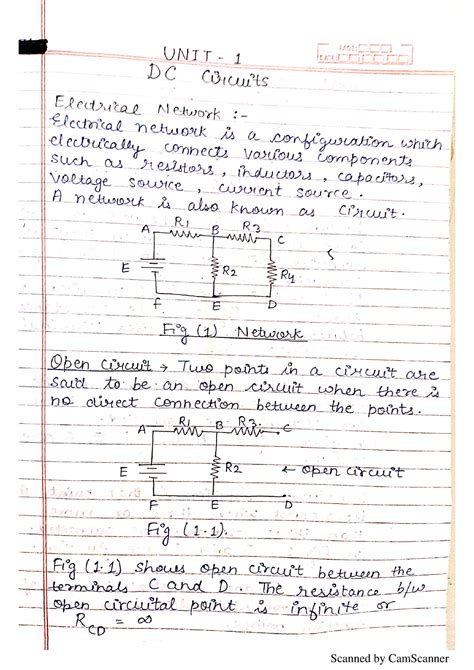 UNIT - 1
DC Circuits
Electrical Network :-
Electrical network is a configuration which
electrically connects various components
such as resistors, inductors, capacitors,
voltage source, current source.
A network is also known as circuit.
A R1 B R3 C
E R2 R4
F E D
Fig (1) Network
Open circuit → Two points in a circuit are
said to be an open circuit when there is
no direct connection between the points.
A R1 B R3 C
E R2 ← open circuit
F E D
Fig (1.1).
Fig (1.1) shows open circuit between the
terminals C and D. The resistance b/w
open circuital point is infinite or
R_CD = ∞
Scanned by CamScanner